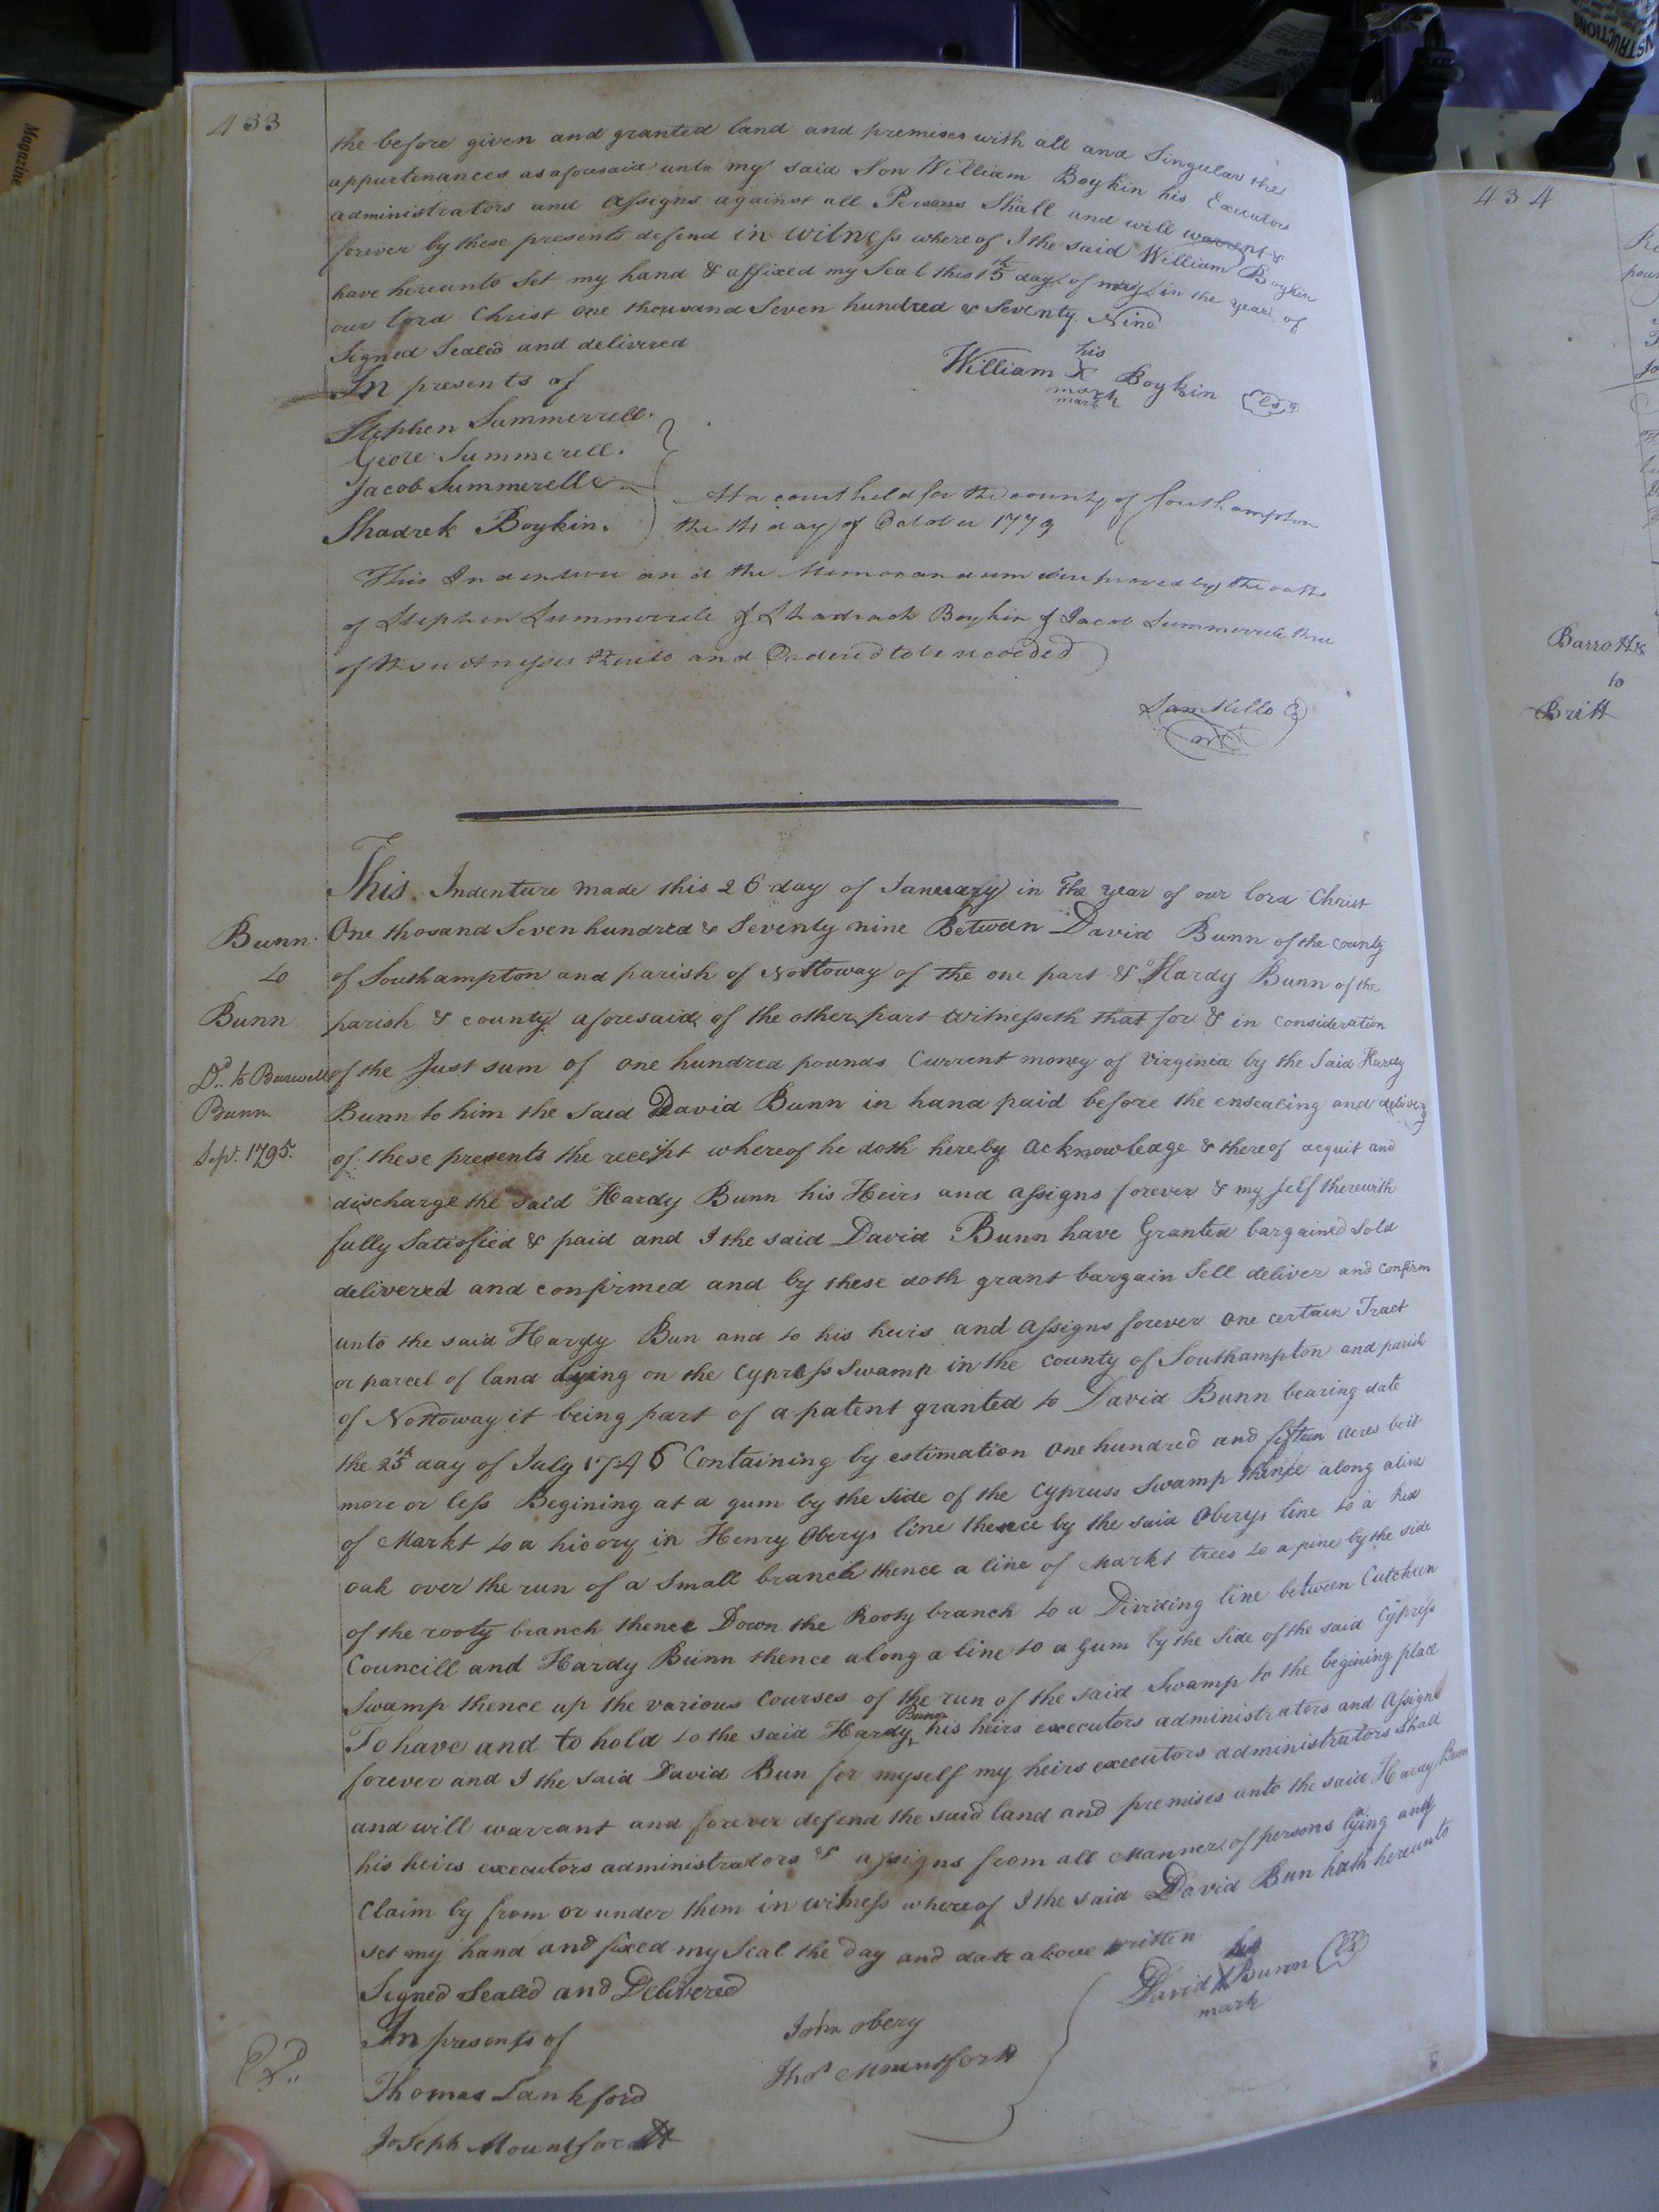 433
the before given and granted land and premises with all and Singular the
appurtenances as aforesaid unto my said Son William Boykin his Executors
administrators and assigns against all Persons Shall and will warrent &
forever by these presents defend in witness whereof I the said William Boykin
have hereunto set my hand & affixed my Seal this 15th day of may in the year of
our lord Christ one thousand Seven hundred & Seventy Nine
Signed Sealed and delivered
In presents of
William his X mark mark Boykin
Stephen Summerrell
Geore Summerell.
Jacob Summerell
Shadrek Boykin.
At a court held for the county of Southampton
the day of October 1779
This Indenture and the Memorandum proved by the oaths
of Stephen Summerrell & Shadrach Boykin & Jacob Summerrell three
of the witnesses thereto and Ordered to be recorded
Sam Kello
This Indenture made this 26 day of Januaray in The year of our lord Christ
Bunn to Bunn
One thosand Seven hundred & Seventy nine Between David Bunn of the county
of Southampton and parish of Nottoway of the one part & Hardy Bunn of the
parish & county aforesaid of the other part Witnesseth that for & in consideration
Dd. to Burwell Bunn. Sepr. 1795.
of the Just sum of one hundred pounds Current money of Virginia by the Said Hardy
Bunn to him the said David Bunn in hand paid before the ensealing and delivery
of these presents the receipt whereof he doth hereby acknowledge & thereof acquit and
discharge the said Hardy Bunn his Heirs and assigns forever & my self therewith
fully Satisfied & paid and I the said David Bunn have Granted bargained Sold
delivered and confirmed and by these doth grant bargain Sell deliver and confirm
unto the said Hardy Bun and to his heirs and assigns forever one certain Tract
or parcel of land lying on the Cypress Swamp in the county of Southampton and parish
of Nottoway it being part of a patent granted to David Bunn bearing date
the 25th day of July 1746 Containing by estimation one hundred and fifteen acres be it
more or less Begining at a gum by the side of the Cypruss Swamp thence along a line
of Markt to a hicory in Henry Oberys line thence by the said Oberys line to a Red
oak over the run of a Small branch thence a line of Markt trees to a pine by the side
of the rooty branch thence Down the Rooty branch to a Dividing line between Cutchen
Councill and Hardy Bunn thence along a line to a gum by the side of the said Cypress
Swamp thence up the various Courses of the run of the said Swamp to the begining place
To have and to hold to the said Hardy Bunn his heirs executors administrators and assigns
forever and I the said David Bun for myself my heirs executors administrators shall
and will warrant and forever defend the said land and premises unto the said Hardy Bunn
his heirs executors administrators & assigns from all Manner of persons lying and
Claim by from or under them in witness whereof I the said David Bun hath hereunto
set my hand and fixed my Seal the day and date above written
Signed Sealed and Delivered
David his X mark Bunn
In presents of
John obery
Thos Mountfortt
Thomas Lankford
Joseph Mountfortt
434
Barrott
to
Britt